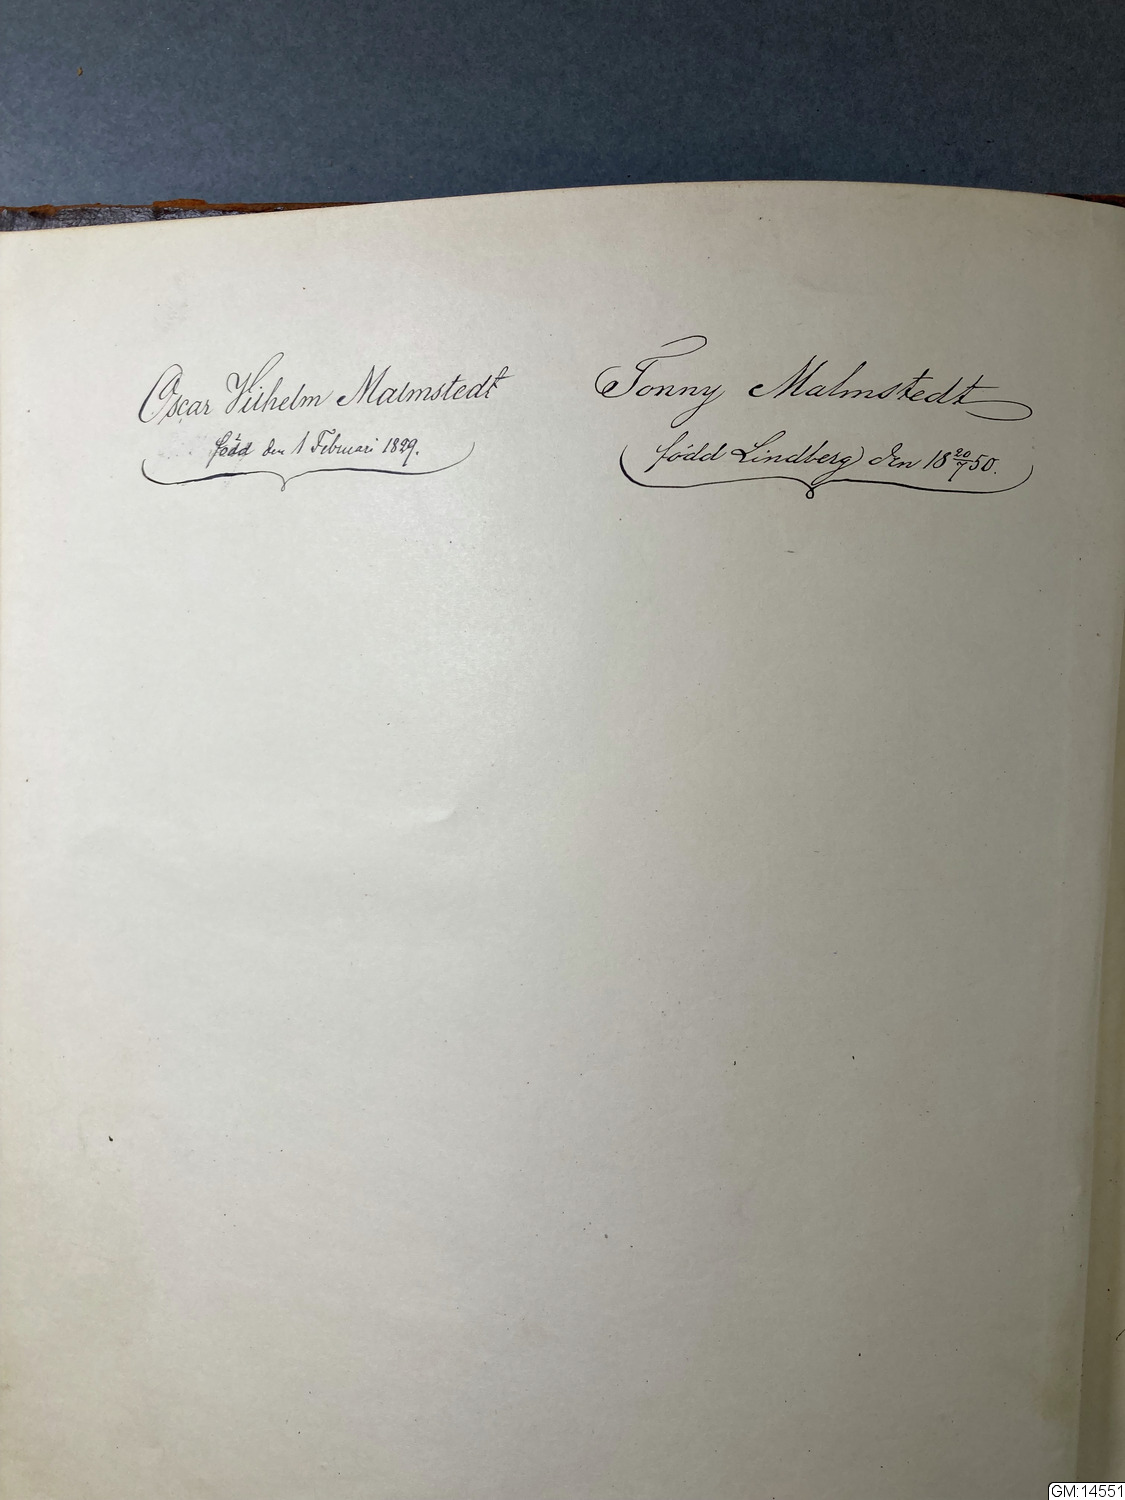 Oscar Vilhelm Malmstedt
född den 1 Februari 1829.
Tonny Malmstedt
född Lindberg den 18 20/7 50.
GM:14551